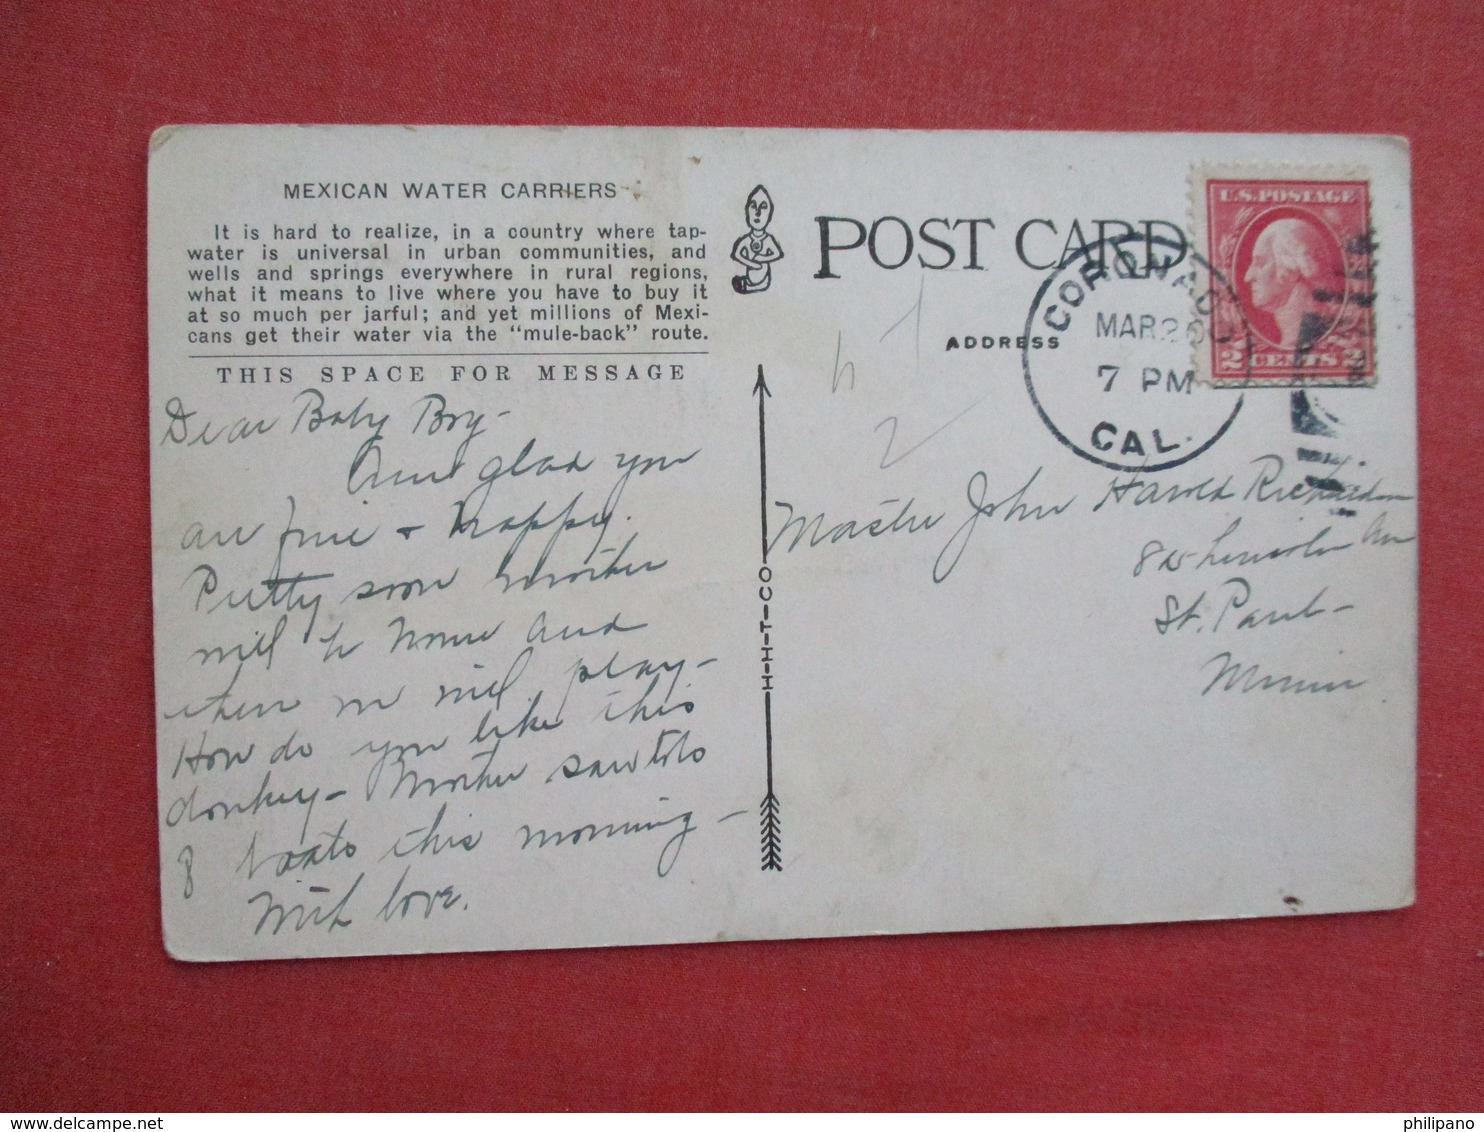 MEXICAN WATER CARRIERS
It is hard to realize, in a country where tap-
water is universal in urban communities, and
wells and springs everywhere in rural regions,
what it means to live where you have to buy it
at so much per jarful; and yet millions of Mexi-
cans get their water via the "mule-back" route.
THIS SPACE FOR MESSAGE
Dear Baby Boy -
Am glad you
are fine + happy.
Pretty soon mother
will be home and
then we will play -
How do you like this
donkey - Mother saw
8 boats this morning -
With love.
H-H-T-CO
POST CARD
ADDRESS
CORONADO
MAR 26
7 PM
CAL.
U.S. POSTAGE
2 CENTS 2
Master John Harold Richardson
Lincoln Ave
St. Paul -
Minn
philipano